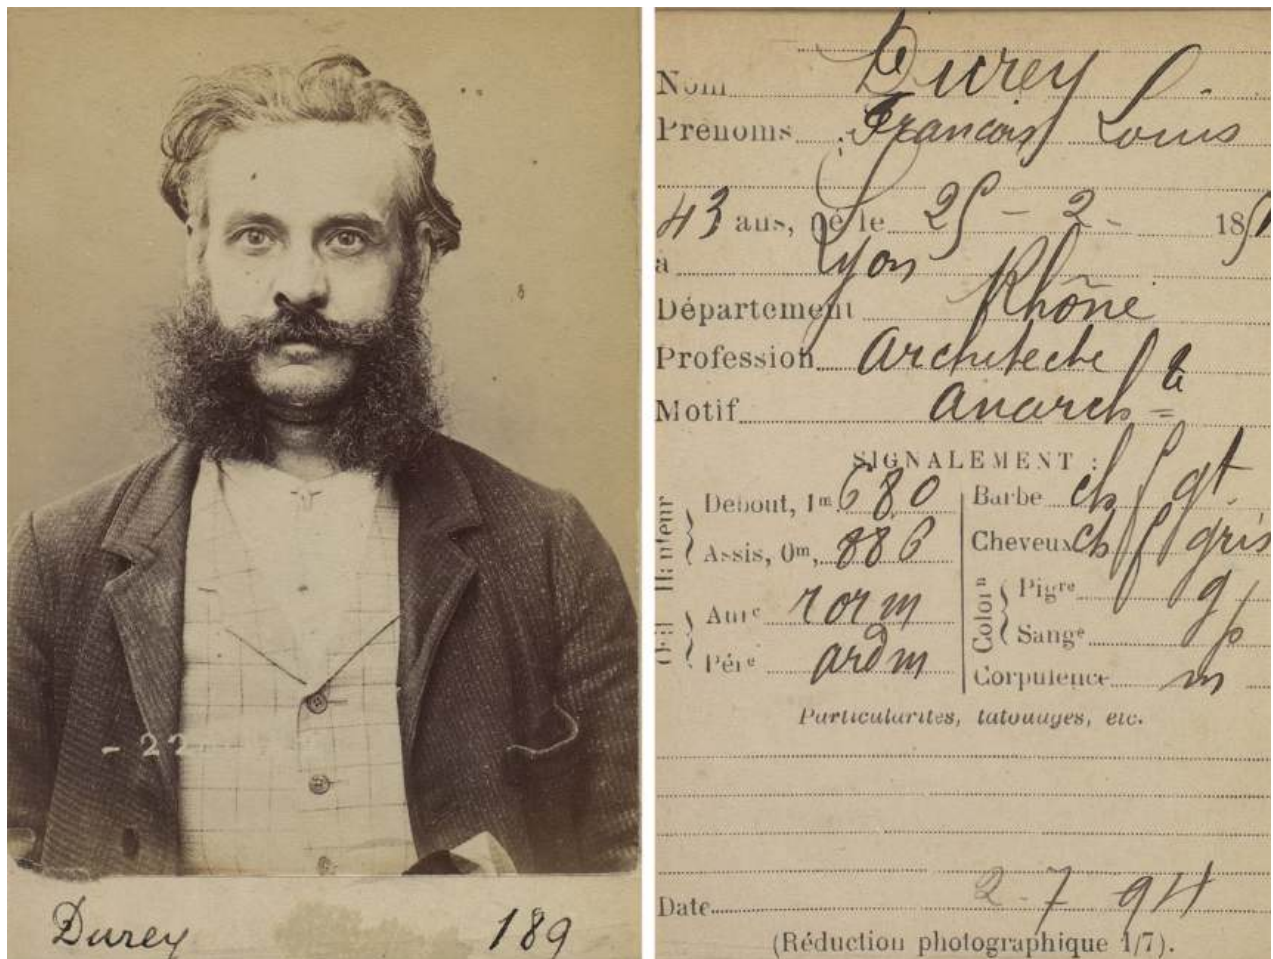 - 22
Durey 189
Nom Durey L.
Prénoms François Louis
43 ans, né le 25 - 2 - 1851
à Lyon
Département Rhône
Profession Architecte
Motif anarch
SIGNALEMENT :
Hauteur
Debout, 1m 680
Assis, 0m, 886
Œil
Aure r or m
Pére ard m
Barbe ch f gt.
Cheveux ch f gris
Colorn
Pigre g
Sange p
Corpulence m
Particularités, tatouages, etc.
Date 2-7 94
(Réduction photographique 1/7).